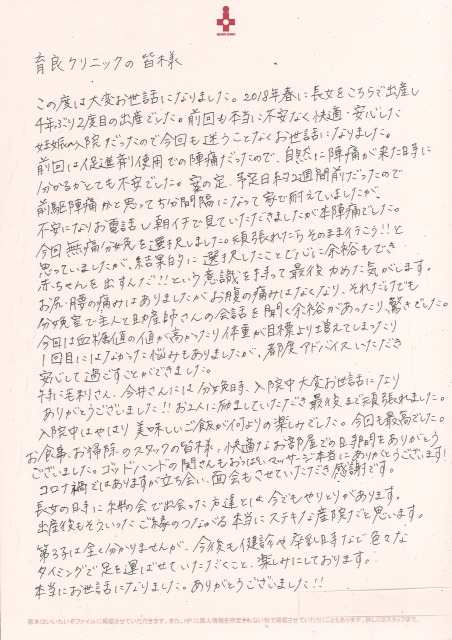 育良クリニックの皆様
この度は大変お世話になりました。2018年春に長女をこちらで出産し
4年ぶり2度目の出産でした。前回も本当に不安なく快適・安心した
妊娠・入院だったので今回も迷うことなくお世話になりました。
前回は促進剤使用での陣痛だったので、自然に陣痛が来た時に
分かるかとても不安でした。案の定、予定日約2週間前だったので
前駆陣痛かと思って5分間隔になって家で耐えていましたが、
不安になりお電話し朝イチで見ていただきましたが本陣痛でした。
今回無痛分娩を選択しました。頑張れたらそのまま行こう!!と
思っていましたが、結果的に選択したことで心に余裕もでき
赤ちゃんを出すんだ!!という意識を持って最後力めた気がします。
お尻・腰の痛みはありましたがお腹の痛みはなくなり、それだけでも
分娩室で主人と助産師さんの会話を聞く余裕があったり、驚きでした。
今回は血糖値の値が高かったり体重が目標より増えてしまったり
1回目にはなかった悩みもありましたが、都度アドバイスいただき
安心して過ごすことができました。
特に毛利さん、今井さんには分娩時、入院中大変お世話になり
ありがとうございました!!お2人に励ましていただき最後まで頑張れました。
入院中はやはり美味しいご飯が何よりの楽しみでした。今回も最高でした。
お食事、お掃除のスタッフの皆様、快適なお部屋での日々をありがとう
ございました。ゴッドハンドの関さんもおっぱいマッサージ本当にありがとうございます!
コロナ禍ではありますが立ち会い、面会もさせていただき感謝です。
長女の時に糸の会で出会った方達とは今でもやりとりがあります。
出産後もそういったご縁のつながる本当にステキな産院だと思います。
第3子は全く分かりませんが、今後も健診や卒乳時など色々な
タイミングで足を運ばせていただくこと、楽しみにしております。
本当にお世話になりました。ありがとうございました!!
原本はいいたいぞファイルに掲載させていただきます。また、HPに個人情報を特定されない形で掲載させていただくこともあります。詳しくはスタッフまで。